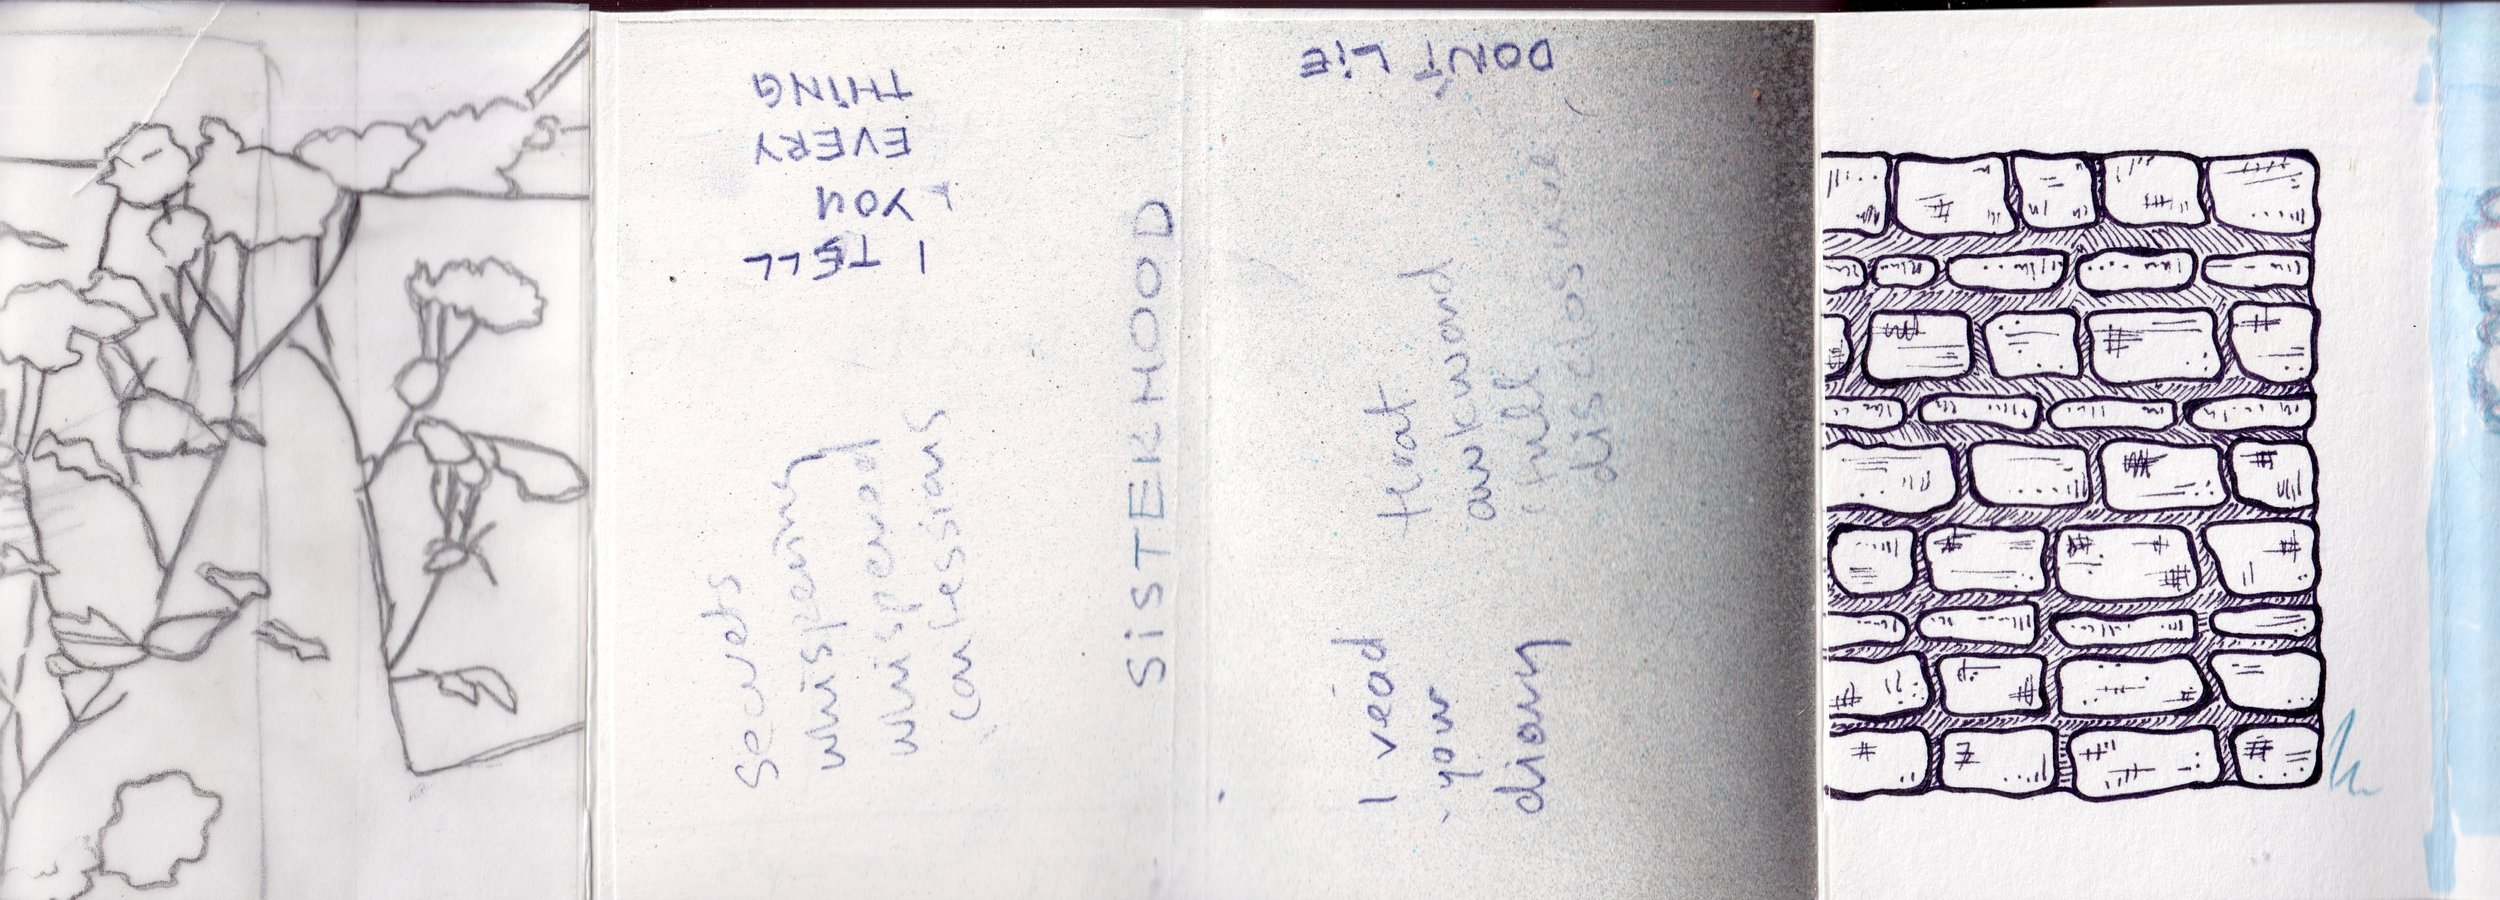 I TELL
YOU
EVERY
THING
DON'T LIE
Secrets
whispering
whispered
confessions
SiSTERHOOD
I read
your
diary
that
awkward
(full
disclosure)